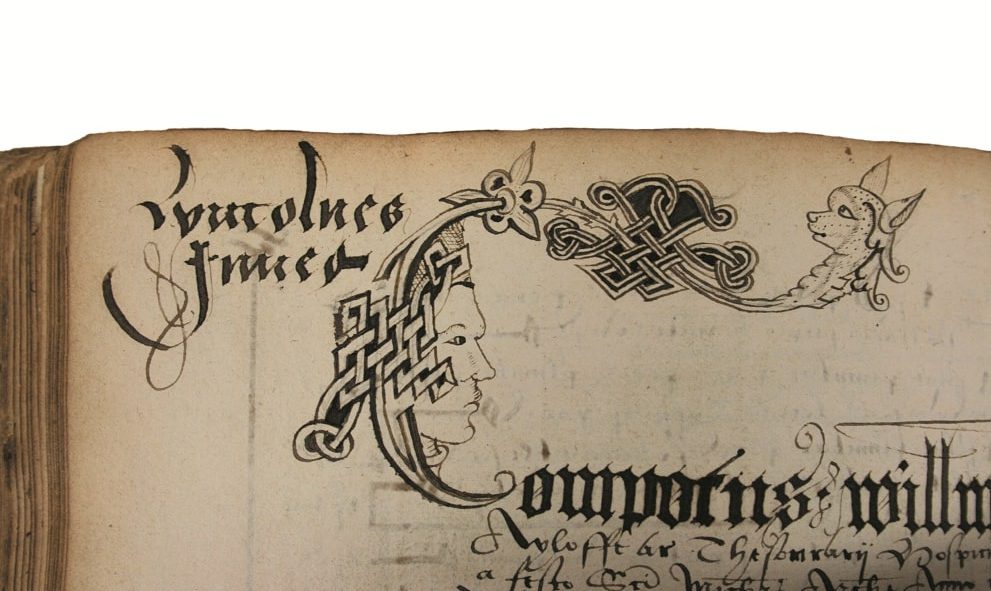 Lyncolnes
Innes
Compotus Willm
Ayloffe ar Thesourarij Hospici
a festo Sci Michis Arche Anno